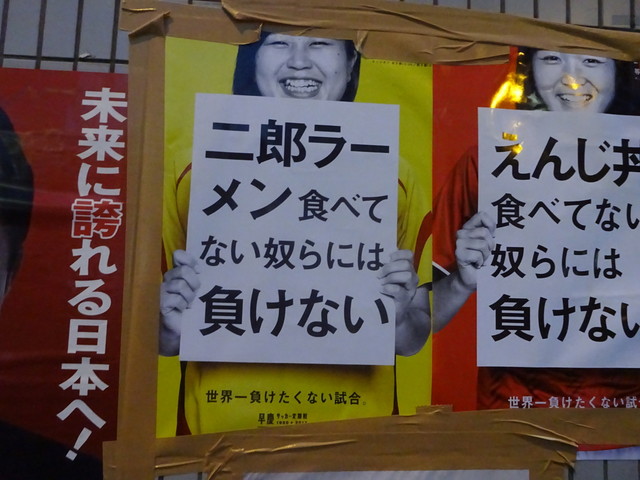 未来に誇れる日本へ!
二郎ラー
メン食べて
ない奴らには
負けない
世界一負けたくない試合。
早慶
えんじ丼
食べてない
奴らには
負けない
世界一負けたくない試合